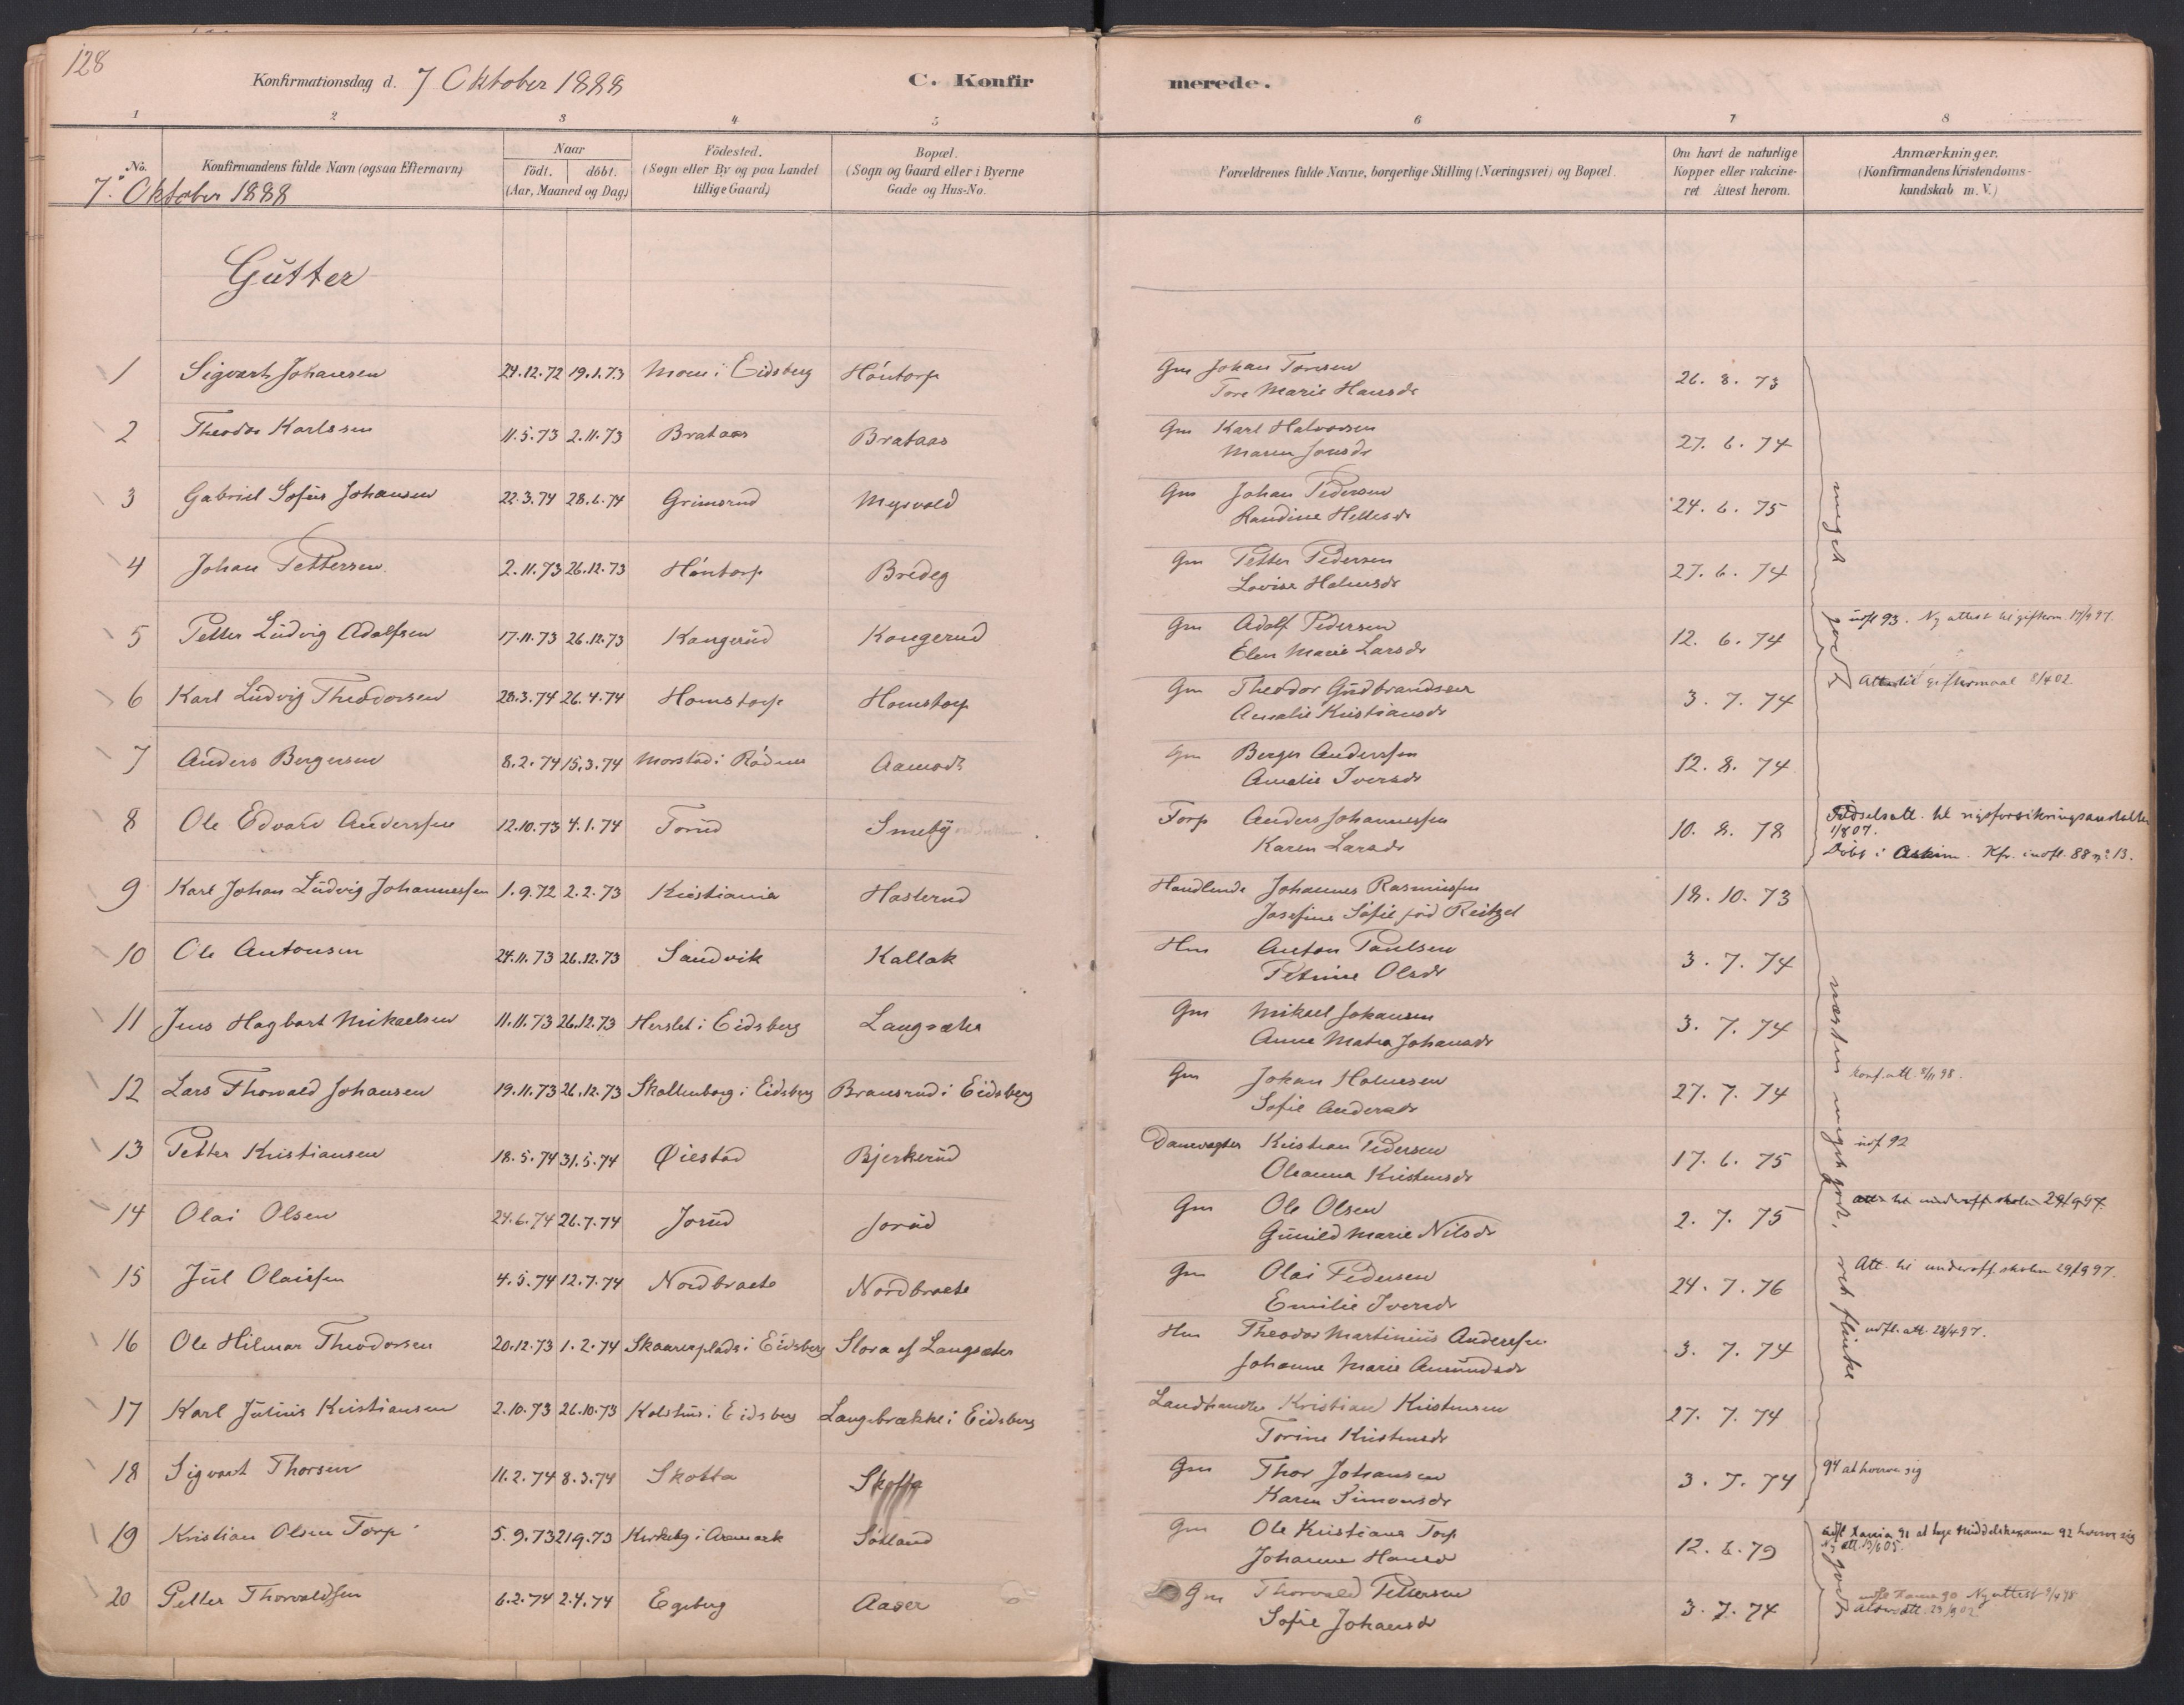 128
Konfirmationsdag d. 7 Oktober 1888
C. Konfirmerede.
1 2 3 4 5 6 7 8
No. Konfirmandens fulde Navn (ogsaa Efternavn) Naar født. döbt. (Aar, Maaned og Dag) Födested. (Sogn eller By og paa Landet tillige Gaard.) Bopæl. (Sogn og Gaard eller i Byerne Gade og Hus-No. Forældrenes fulde Navne, borgerlige Stilling (Næringsvei) og Bopæl. Om havt de naturlige Kopper eller vakcineret. Attest herom. Anmærkninger. (Konfirmandens Kristendomskundskab m. V.)
7. Oktober 1888
Gutter
1 Sigvart Johansen 24.12.72 19.1.73 Moen i Eidsberg Höntorp Gm Johan Toresen 26. 8. 73
Tore Marie Hansdr
2 Theodor Karlssen 11.5.73 2.11.73 Brataas Brataas Gm Karl Halvorsen 27. 6. 74
Maren Jonsdr
3 Gabriel Sofus Johansen 22.3.74 28.6.74 Grimsrud Mysvold Gm Johan Pedersen 24. 6. 75
Randine Hellesdr
4 Johan Pettersen 2.11.73 26.12.73 Höntorp Bredeg Gm Petter Pedersen 27. 6. 74
Lovise Holmsdr
5 Petter Ludvig Adolfsen 17.11.73 26.12.73 Kongerud Kongerud Gm Adolf Pedersen 12. 6. 74 udfl 93. Ny attest til gifterm. 17/9 97.
Elen Marie Larsdr
6 Karl Ludvig Theodorsen 28.3.74 26.4.74 Homstorp Homstorp Gm Theodor Gudbrandsen 3. 7. 74 Att til giftermaal 8/4 02
Amalie Kristiansdr
meget godt
7 Anders Bergersen 8.2.74 15.3.74 Morstad i Rödnes Aamodt Gm Berger Anderssen 12. 8. 74
Amalie Iversdr
8 Ole Edvard Anderssen 12.10.73 4.1.74 Torud Smeby Torp Anders Johannessen 10. 8. 78 Födselsatt. til rigsforsikringsanstalten 1/8 07.
Karen Larsdr Döbt i Askim. Kfr. indfl. 88 no 13.
9 Karl Johan Ludvig Johannessen 1.9.72 2.2.73 Kristiania Hasterud Handlende Johannes Rasmussen 18. 10. 73
Josefine Sofie föd Reitzel
10 Ole Antonsen 24.11.73 26.12.73 Sandvik Kallak Hm Anton Paulsen 3. 7. 74
Petrine Olsdr
11 Jens Hagbart Mikaelsen 11.11.73 26.12.73 Herslet i Eidsberg Langsæter Gm Mikael Johansen 3. 7. 74
Anne Matea Johansdr
12 Lars Thorvald Johansen 19.11.73 26.12.73 Skallenborg i Eidsberg Bransrud i Eidsberg Gm Johan Holmesen 27. 7. 74 Konf. att. 8/11 98.
Sofie Andersdr
13 Petter Kristiansen 18.5.74 31.5.74 Øiestad Bjerkerud Banevagter Kristian Pedersen 17. 6. 75 udf 92
Oleanna Kristensdr
14 Olai Olsen 24.6.74 26.7.74 Jorud Jorud Gm Ole Olsen 2. 7. 75 att. til underoff. skolen 29/9 97.
Gunild Marie Nilsdr
15 Jul Olaissen 4.5.74 12.7.74 Nordbraate Nordbraate Gm Olai Pedersen 24. 7. 76 Att. til underoff. skolen 29/9 97.
Emilie Iversdr
16 Ole Hilmar Theodorsen 20.12.73 1.2.74 Skaarerplads i Eidsberg Slora af Langsæter Hm Theodor Martinius Anderssen 3. 7. 74 udfl. att. 28/4 97.
Johanne Marie Amundsdr
17 Karl Julius Kristiansen 2.10.73 26.10.73 Kolshus i Eidsberg Langebrække i Eidsberg Landhandler Kristian Kristensen 27. 7. 74
Torine Kristensdr
18 Sigvart Thorsen 11.2.74 8.3.74 Skotta Skotta Gm Thor Johansen 3. 7. 74 94 at hverve sig
Karen Simonsdr
næsten meget godt, ret flinke
19 Kristian Olsen Torp 5.9.73 21.9.73 Kirkeby i Aremark Sötland Gm Ole Kristians Torp 12. 6. 79 udfl Xania 91 at tage Middelskexamen 92 hverve sig
Johanne Hansdr Ny att. 13/6 05.
20 Petter Thorvaldsen 6.2.74 2.4.74 Egeberg Aaser Gm Thorvald Pettersen 3. 7. 74 udfl Xania 90 Ny attest 9/4 98
Sofie Johansdr att. 23/9 02
godt